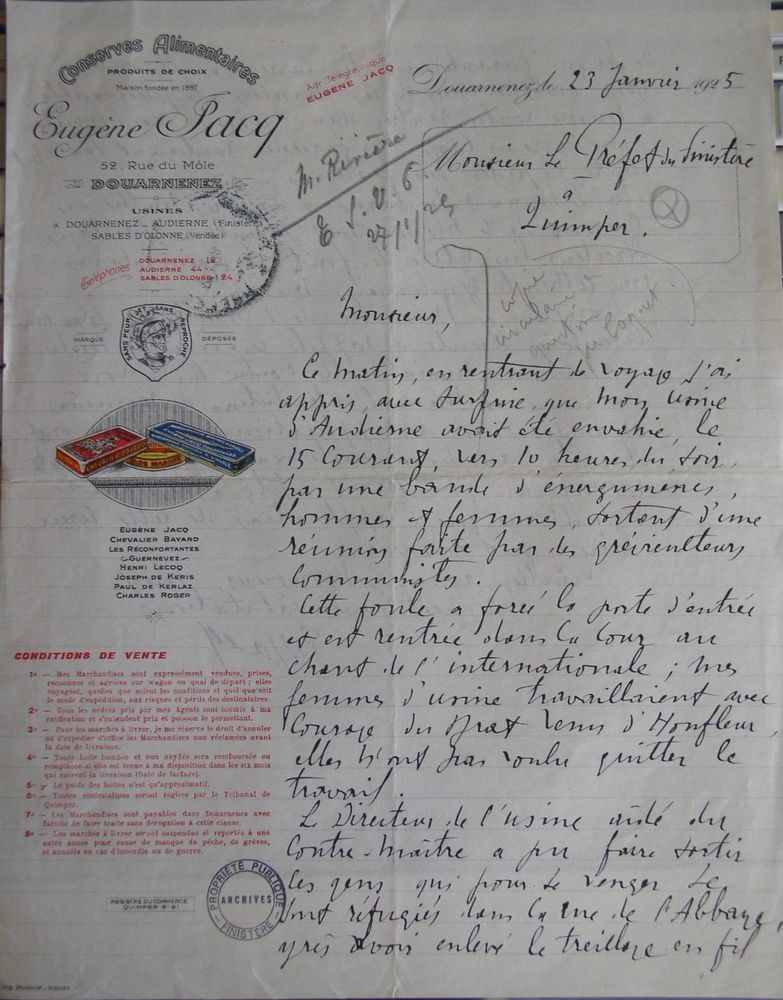 Conserves Alimentaires
PRODUITS DE CHOIX
Maison fondée en 1897
Eugène Jacq
52, Rue du Môle
DOUARNENEZ
USINES
A DOUARNENEZ _ AUDIERNE (Finistère)
SABLES D'OLONNE (Vendée)
Téléphones
DOUARNENEZ 12
AUDIERNE 44
SABLES D'OLONNE 1.24
Adr. Télégraphique
EUGÈNE JACQ
MARQUE
SANS PEUR ET SANS REPROCHE
DÉPOSÉE
EUGÈNE JACQ
CHEVALIER BAYARD
LES RÉCONFORTANTES
GUERNEVEZ
HENRI LECOQ
JOSEPH DE KERIS
PAUL DE KERLAZ
CHARLES ROGER
CONDITIONS DE VENTE
1º — Mes Marchandises sont expressément vendues, prises,
reconnues et agréées sur wagon ou quai de départ ; elles
voyagent, quelles que soient les conditions et quel que soit
le mode d'expédition, aux risques et périls des destinataires.
2º — Tous les ordres pris par mes Agents sont soumis à ma
ratification et s'entendent prix et poisson le permettant.
3º — Pour les marchés à livrer, je me réserve le droit d'annuler
ou d'expédier d'office les Marchandises non réclamées avant
la date de livraison.
4º — Toute boîte bombée et non oxydée sera remboursée ou
remplacée si elle est tenue à ma disposition dans les six mois
qui suivent la livraison (Date de facture).
5º — Le poids des boîtes n'est qu'approximatif.
6º — Toutes contestations seront régies par le Tribunal de
Quimper.
7º — Les Marchandises sont payables dans Douarnenez avec
faculté de faire traite sans dérogation à cette clause.
8º — Les marchés à livrer seront suspendus et reportés à une
autre année pour cause de manque de pêche, de grèves,
et annulés en cas d'incendie ou de guerre.
REGISTRE DU COMMERCE
QUIMPER 9191
PROPRIÉTÉ PUBLIQUE
ARCHIVES
FINISTÈRE
Imp Moderne _ Nantes
Douarnenez, le 23 Janvier 1925
M. Rivière
27/1/25
Monsieur Le Préfet du Finistère
à
Quimper.
Monsieur,
Ce matin, en rentrant de voyage j'ai
appris, avec surprise, que mon usine
d'Audierne avait été envahie, le
15 Courant, vers 10 heures du soir,
par une bande d'énergumenes,
hommes et femmes, sortant d'une
réunion faite par des gréviculteurs
Communistes.
Cette foule a forcé la porte d'entrée
et est rentrée dans la Cour au
chant de l'internationale ; mes
femmes d'usine travaillaient avec
Courage du Sprat venu d'Honfleur,
elles n'ont pas voulu quitter le
travail.
Le Directeur de l'usine aidé du
Contre-Maître a pu faire sortir
les gens qui pour se venger se
sont réfugiés dans la rue de l'Abbaye,
après avoir enlevé le treillage en fil